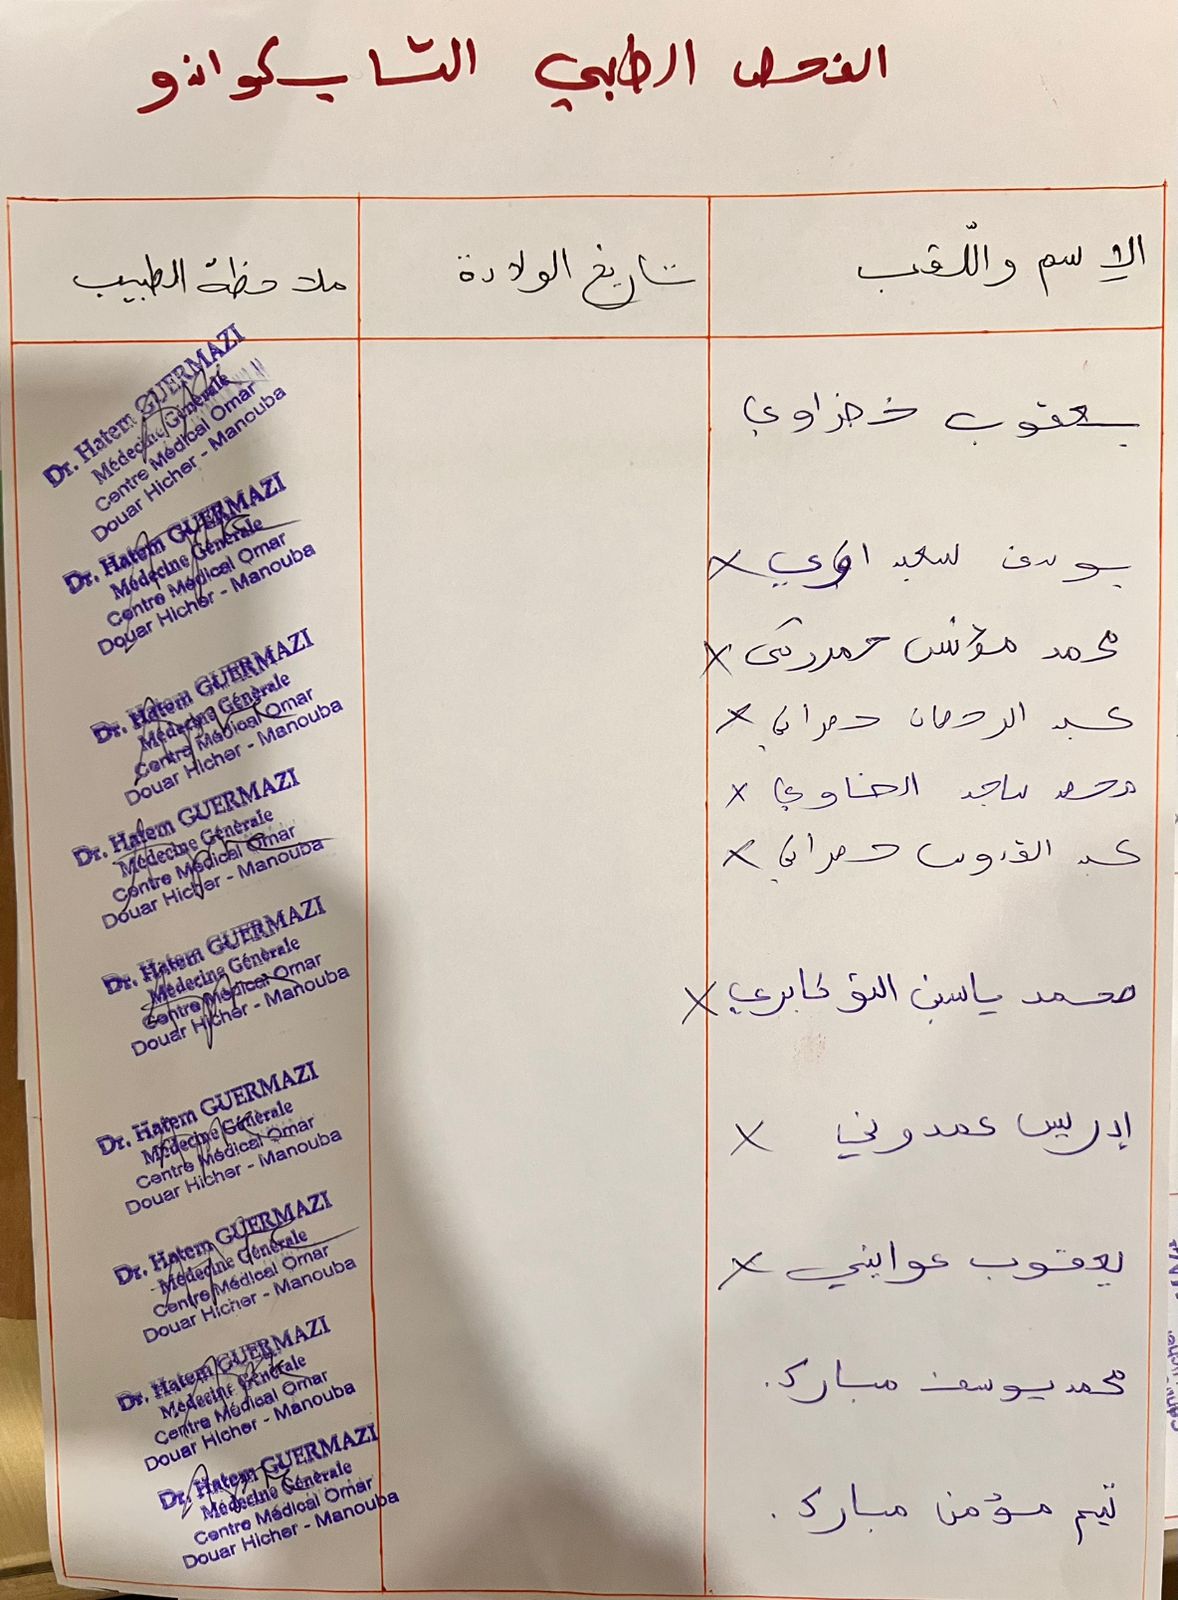 الفحص الطبي التايكواندو
الإسم واللّقب
تاريخ الولادة
ملاحظة الطبيب
يعقوب خضراوي
Dr. Hatem GUERMAZI
Médecine Générale
Centre Médical Omar
Douar Hicher - Manouba
يوسف سعيداوي X
Dr. Hatem GUERMAZI
Médecine Générale
Centre Médical Omar
Douar Hicher - Manouba
محمد مؤنس X
عبد الرحمان حمراني X
Dr. Hatem GUERMAZI
Médecine Générale
Centre Médical Omar
Douar Hicher - Manouba
محمد ساجد الحناوي X
عبد القدوس حمراني X
Dr. Hatem GUERMAZI
Médecine Générale
Centre Médical Omar
Douar Hicher - Manouba
محمد ياسين التوكابري X
Dr. Hatem GUERMAZI
Médecine Générale
Centre Médical Omar
Douar Hicher - Manouba
إدريس عمدوني X
Dr. Hatem GUERMAZI
Médecine Générale
Centre Médical Omar
Douar Hicher - Manouba
يعقوب عوايني X
Dr. Hatem GUERMAZI
Médecine Générale
Centre Médical Omar
Douar Hicher - Manouba
محمد يوسف مبارك.
Dr. Hatem GUERMAZI
Médecine Générale
Centre Médical Omar
Douar Hicher - Manouba
تيم مؤمن مبارك.
Dr. Hatem GUERMAZI
Médecine Générale
Centre Médical Omar
Douar Hicher - Manouba